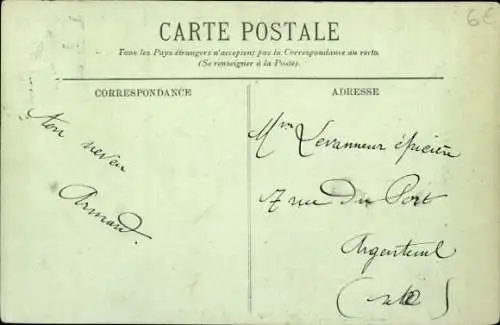 6€
CARTE POSTALE
Tous les Pays étrangers n'acceptent pas la Correspondance au recto.
(Se renseigner à la Poste).
CORRESPONDANCE
ADRESSE
ton neveu
Armand.
Levanneur épicière
7 rue du Port
Argenteuil